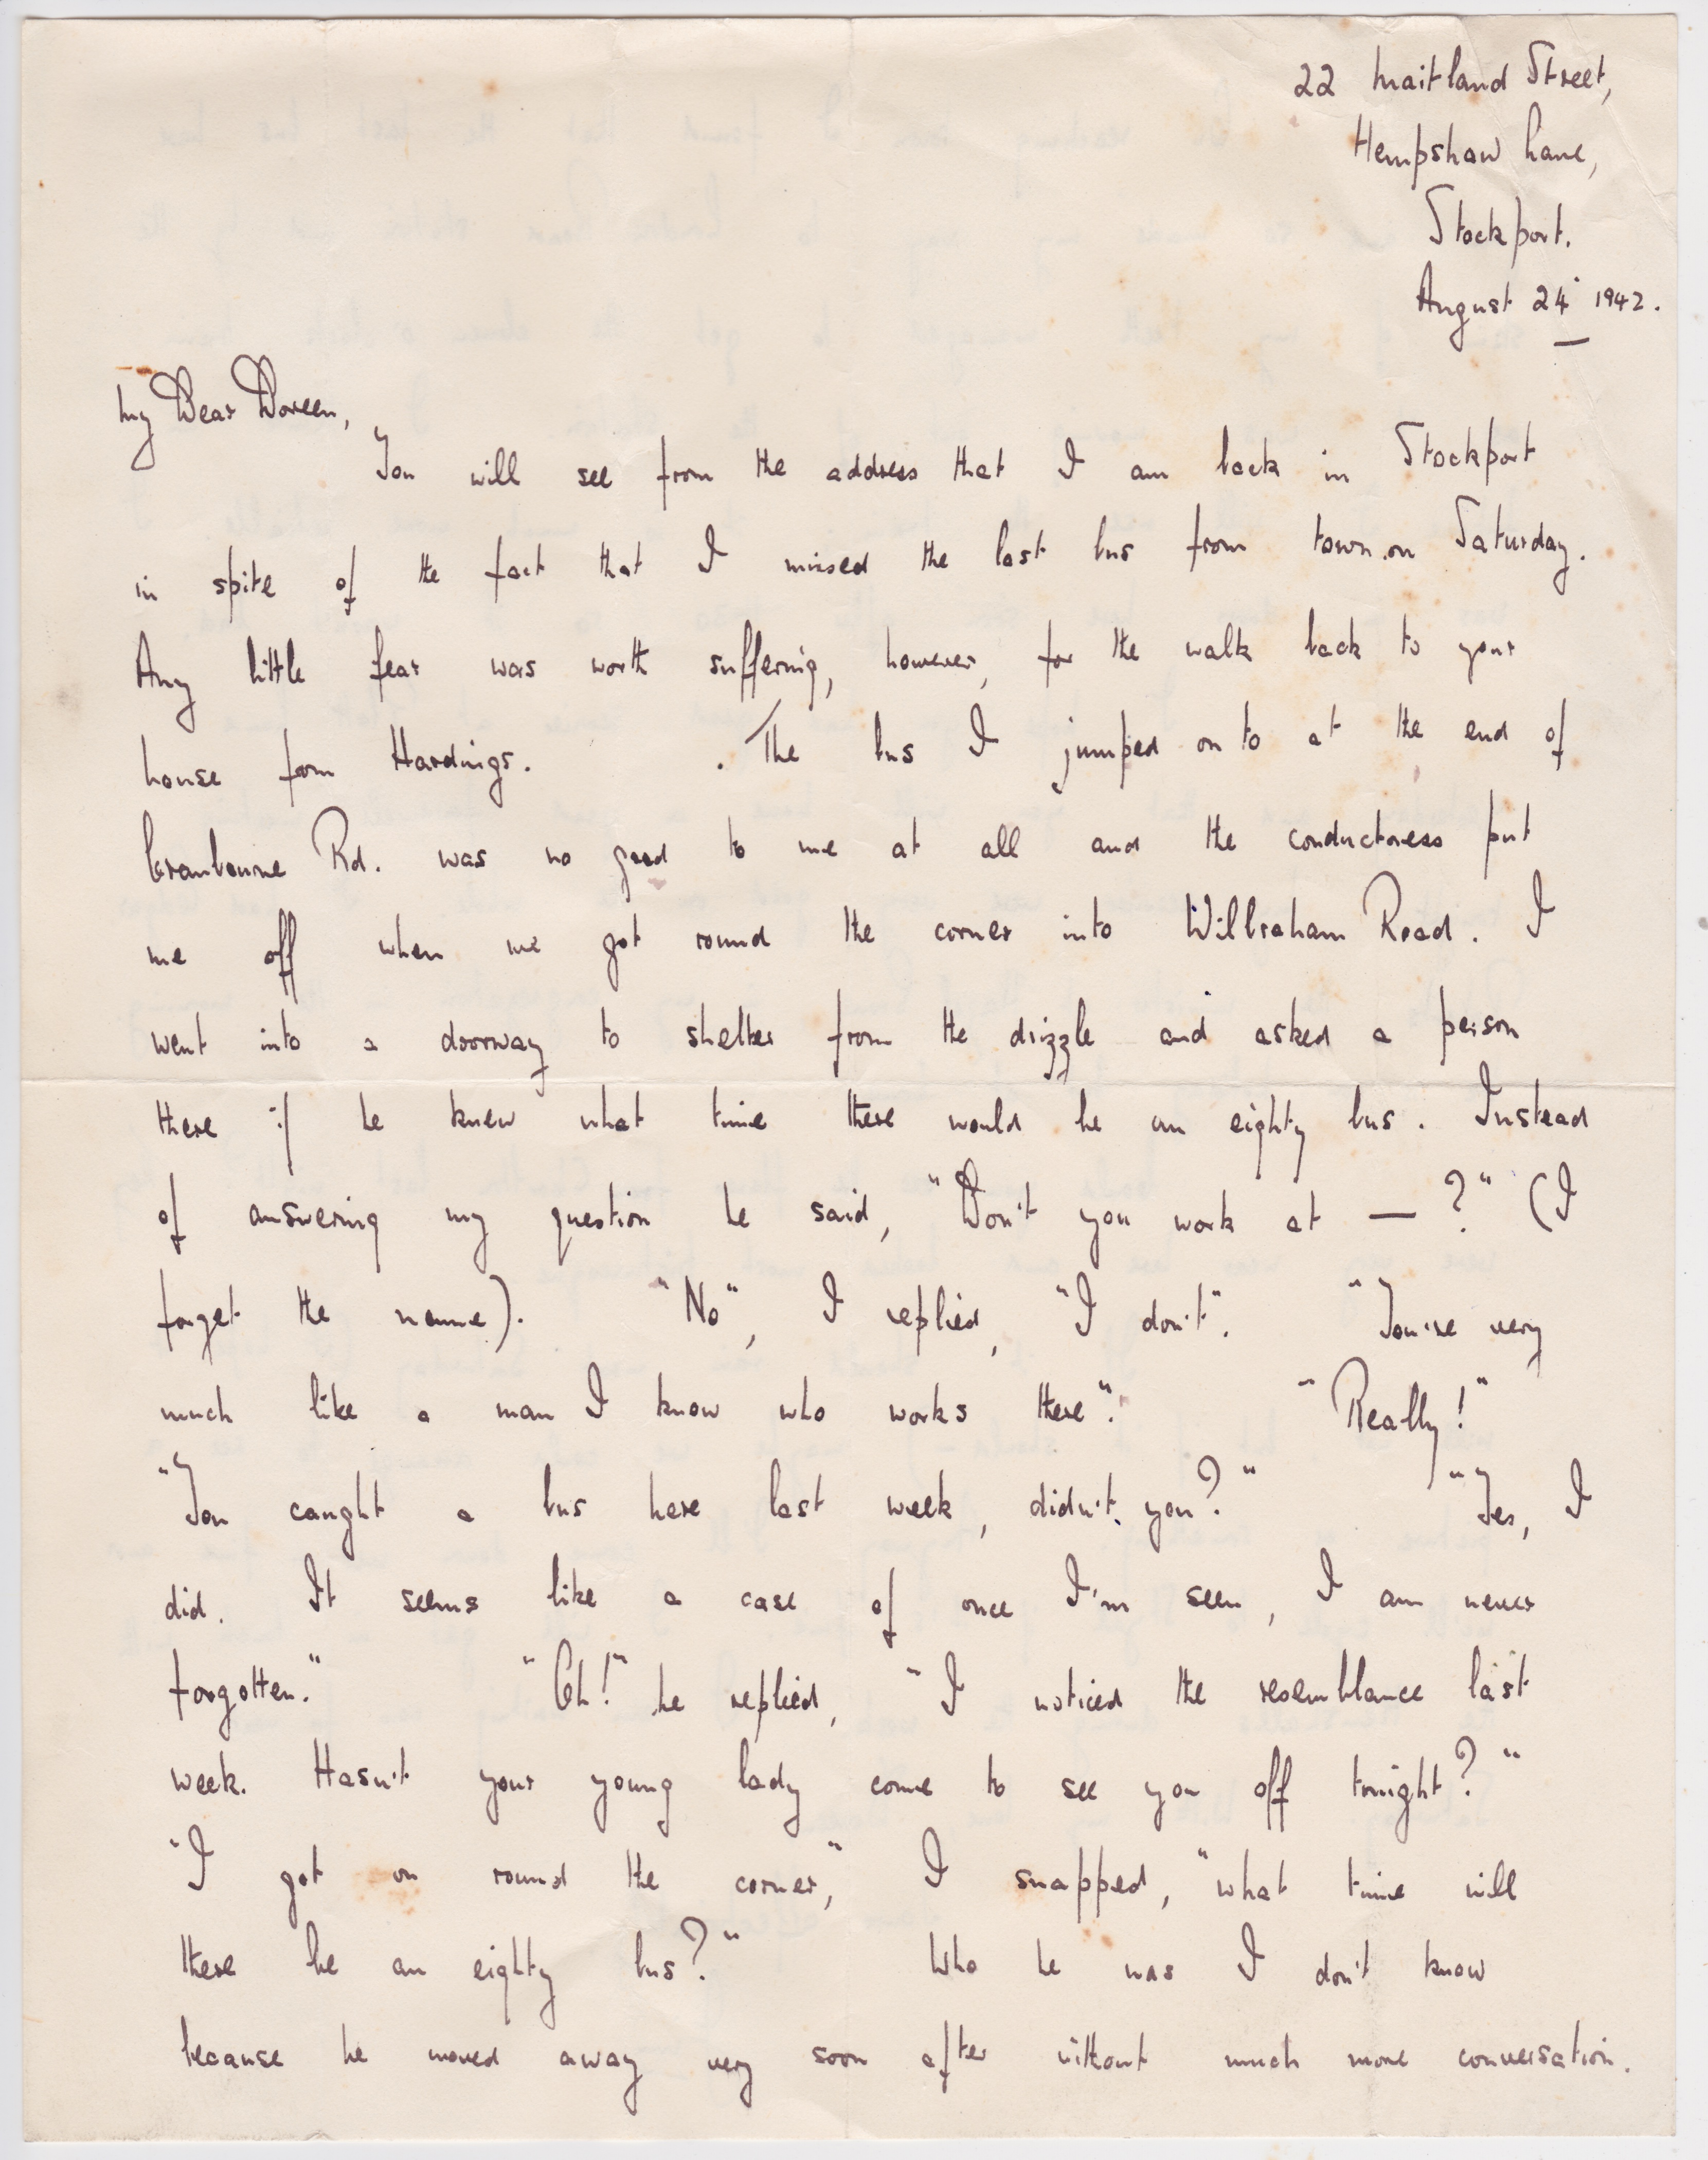 22 Maitland Street,
Hempshaw Lane,
Stockport.
August 24 1942.
My Dear Doreen,
You will see from the address that I am back in Stockport
in spite of the fact that I missed the last bus from town on Saturday.
Any little fear was worth suffering, however, for the walk back to your
house from Hardings. . The bus I jumped on to at the end of
Cranbourne Rd. was no good to me at all and the conductress put
me off when we got round the corner into Wilbraham Road. I
went into a doorway to shelter from the drizzle and asked a person
there if he knew what time there would be an eighty bus. Instead
of answering my question he said, "Don't you work at — ?" (I
forget the name). "No", I replied, "I don't". "You're very
much like a man I know who works there". "Really!"
"You caught a bus here last week, didn't you?" "Yes, I
did. It seems like a case of once I'm seen, I am never
forgotten." "Oh!" he replied, "I noticed the resemblance last
week. Hasn't your young lady come to see you off tonight?"
"I got on round the corner," I snapped, "what time will
there be an eighty bus?" Who he was I don't know
because he moved away very soon after without much more conversation.